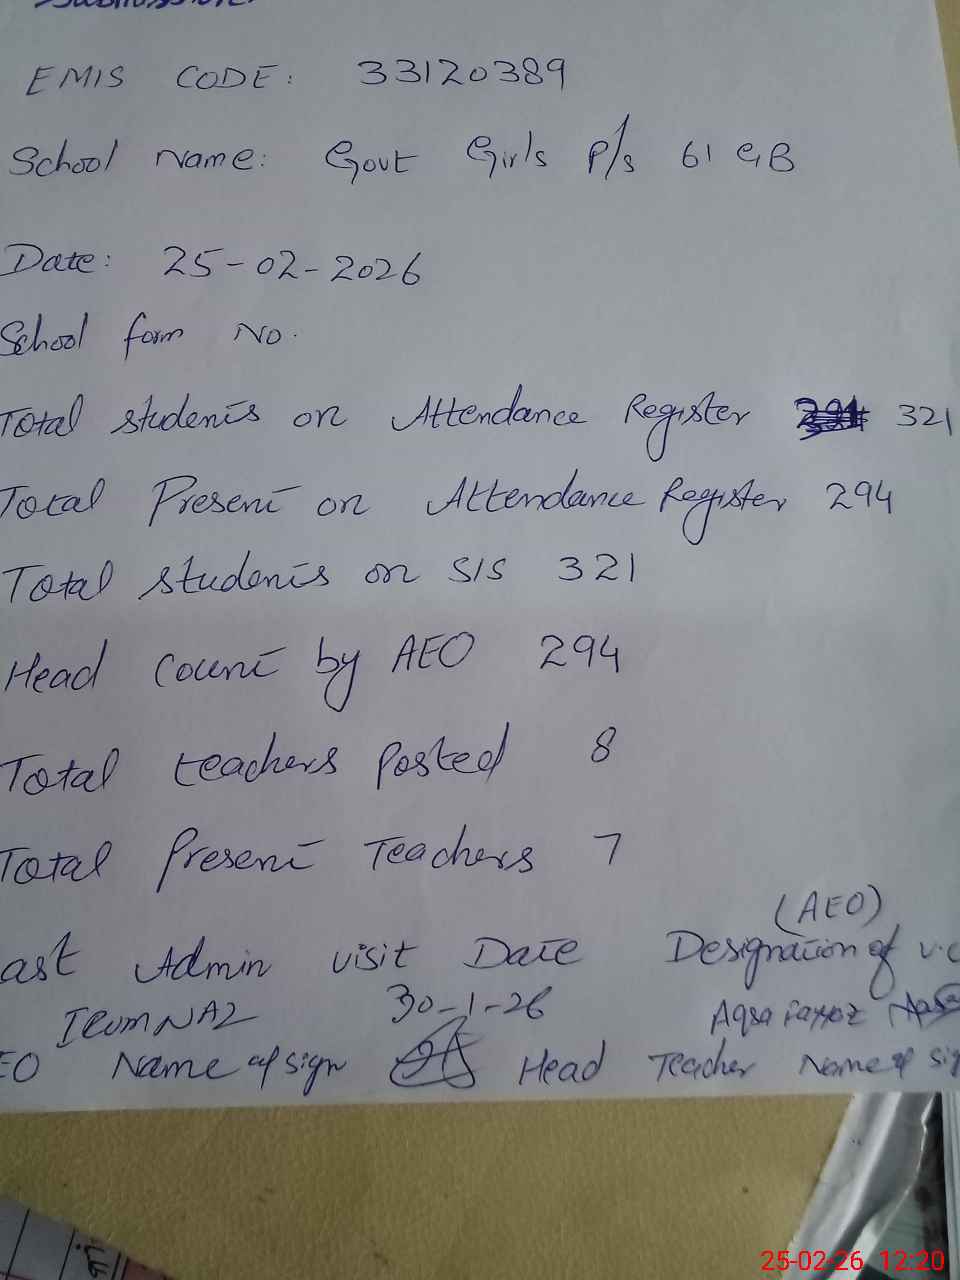 EMIS CODE: 33120389
School Name: Govt Girls P/s 61 GB
Date: 25-02-2026
School form No.
Total students on Attendance Register 321
Total Present on Attendance Register 294
Total students on SIS 321
Head Count by AEO 294
Total teachers Posted 8
Total Present Teachers 7
(AEO)
ast Admin visit Date Designation of v.
30-1-26
Aqsa
EO Name of sign Head Teacher Name of sig
25-02-26 12:20